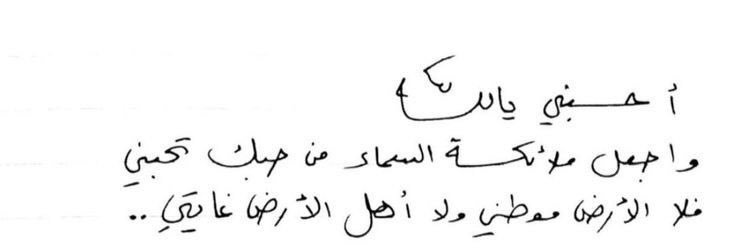 أحبني يالله
واجعل ملائكة السماء من حبك تحبني
فلا الأرض موطني ولا أهل الأرض غايتي ..